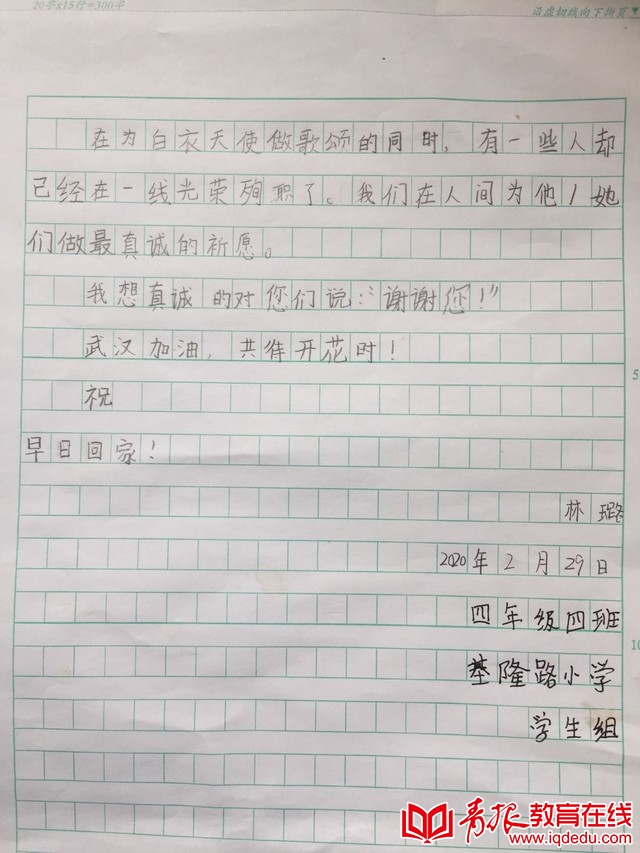 20字x15行=300字
沿虚切线向下撕页
在为白衣天使做歌颂的同时，有一些人却
已经在一线光荣殉职了。我们在人间为他/她
们做最真诚的祈愿。
我想真诚的对您们说：“谢谢您！”
武汉加油，共待开花时！
5
祝
早日回家！
林璐
2020年2月29日
四年级四班
10
基隆路小学
学生组
青报教育在线
www.iqdedu.com